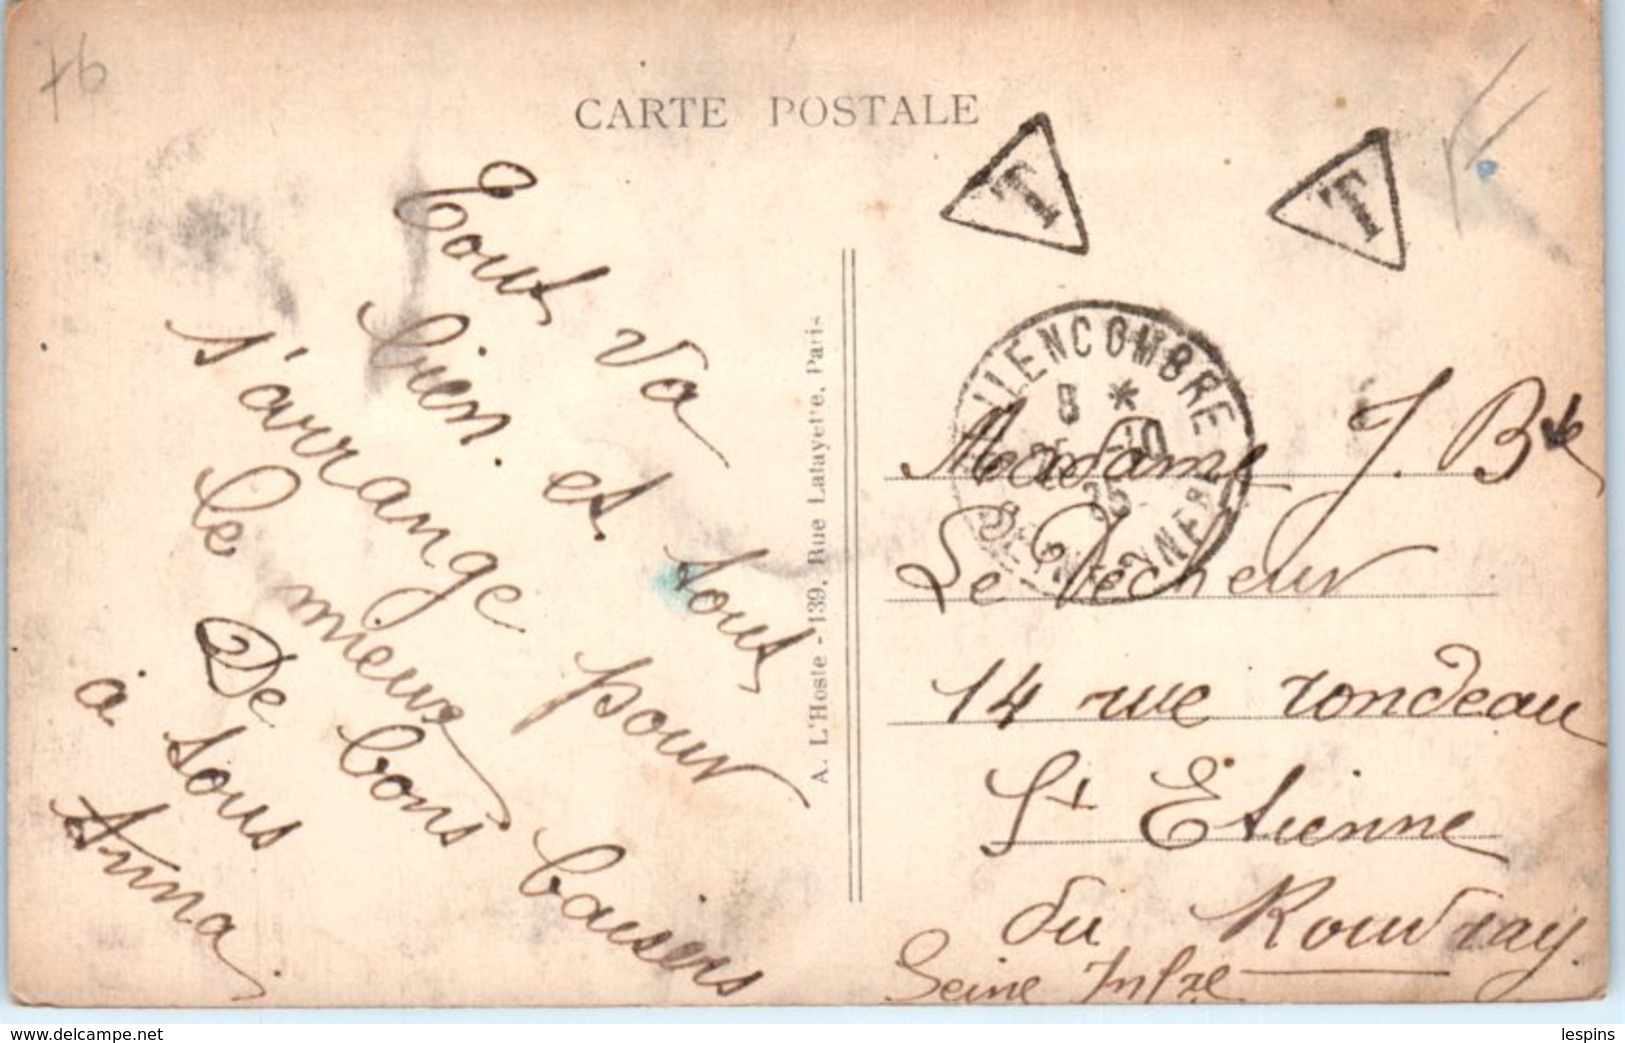 76
CARTE POSTALE
T
T
Tout va
bien. et tout
s'arrange pour
le mieux
De bons baisers
à tous
Anna.
A. L'Hoste - 139, Rue Lafayette, Paris
8 *
25 -10
35
Madame J. Bte
Le Vecheur
14 rue rondeau
St Etienne
du Rouvray.
Seine Infre
www.delcampe.net
lespins